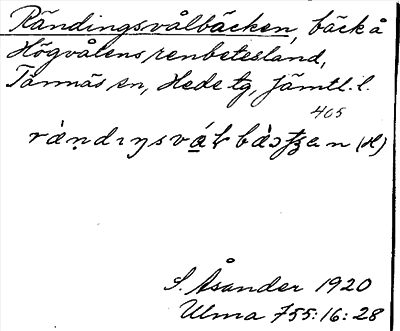 Rändingsvålbäcken, bäck å
Högvålens renbetesland,
Tännäs sn, Hede tg, Jämtl. l.
405
(H)
S. Åsander 1920
Ulma 755:16:28